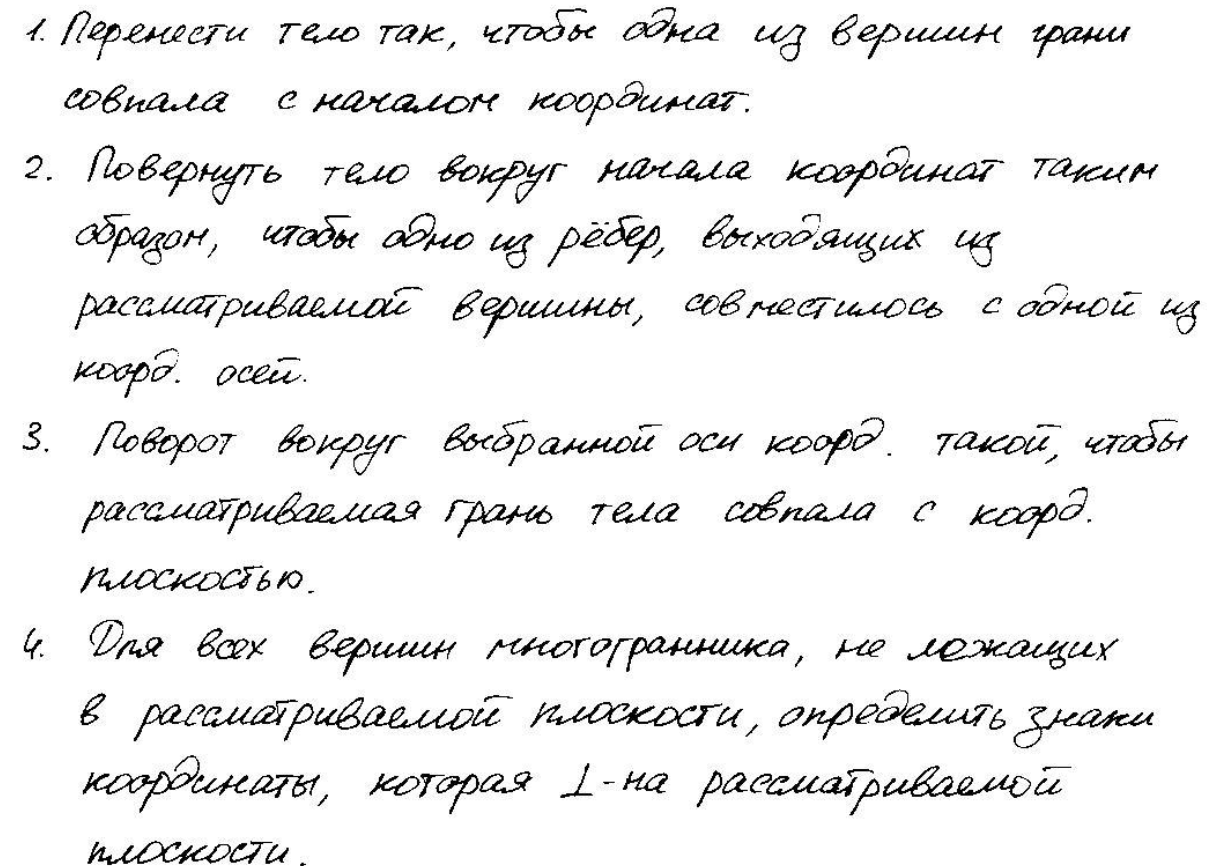 1. Перенести тело так, чтобы одна из вершин грани
совпала с началом координат.
2. Повернуть тело вокруг начала координат таким
образом, чтобы одно из рёбер, выходящих из
рассматриваемой вершины, совместилось с одной из
коорд. осей.
3. Поворот вокруг выбранной оси коорд. такой, чтобы
рассматриваемая грань тела совпала с коорд.
плоскостью.
4. Для всех вершин многогранника, не лежащих
в рассматриваемой плоскости, определить знаки
координаты, которая ⊥-на рассматриваемой
плоскости.